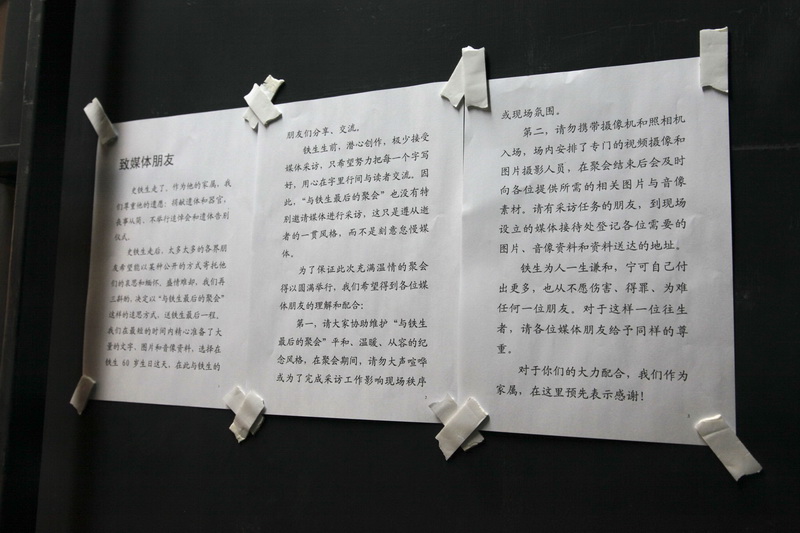 致媒体朋友
史铁生走了，作为他的家属，我
们尊重他的遗愿：捐献遗体和器官，
丧事从简、不举行追悼会和遗体告别
仪式。
史铁生走后，太多太多的各界朋
友希望能以某种公开的方式寄托他
们的哀思和缅怀，盛情难却，我们再
三斟酌，决定以“与铁生最后的聚会”
这样的追思方式，送铁生最后一程。
我们在最短的时间内精心准备了大
量的文字、图片和音像资料，选择在
铁生 60 岁生日这天，在此与铁生的
朋友们分享、交流。
铁生生前，潜心创作，极少接受
媒体采访，只希望努力把每一个字写
好，用心在字里行间与读者交流。因
此，“与铁生最后的聚会”也没有特
别邀请媒体进行采访，这只是遵从逝
者的一贯风格，而不是刻意怠慢媒
体。
为了保证此次充满温情的聚会
得以圆满举行，我们希望得到各位媒
体朋友的理解和配合：
第一，请大家协助维护“与铁生
最后的聚会”平和、温暖、从容的纪
念风格，在聚会期间，请勿大声喧哗
或为了完成采访工作影响现场秩序
或现场氛围。
第二，请勿携带摄像机和照相机
入场，场内安排了专门的视频摄像和
图片摄影人员，在聚会结束后会及时
向各位提供所需的相关图片与音像
素材。请有采访任务的朋友，到现场
设立的媒体接待处登记各位需要的
图片、音像资料和资料送达的地址。
铁生为人一生谦和，宁可自己付
出更多，也从不愿伤害、得罪、为难
任何一位朋友。对于这样一位往生
者，请各位媒体朋友给予同样的尊
重。
对于你们的大力配合，我们作为
家属，在这里预先表示感谢！